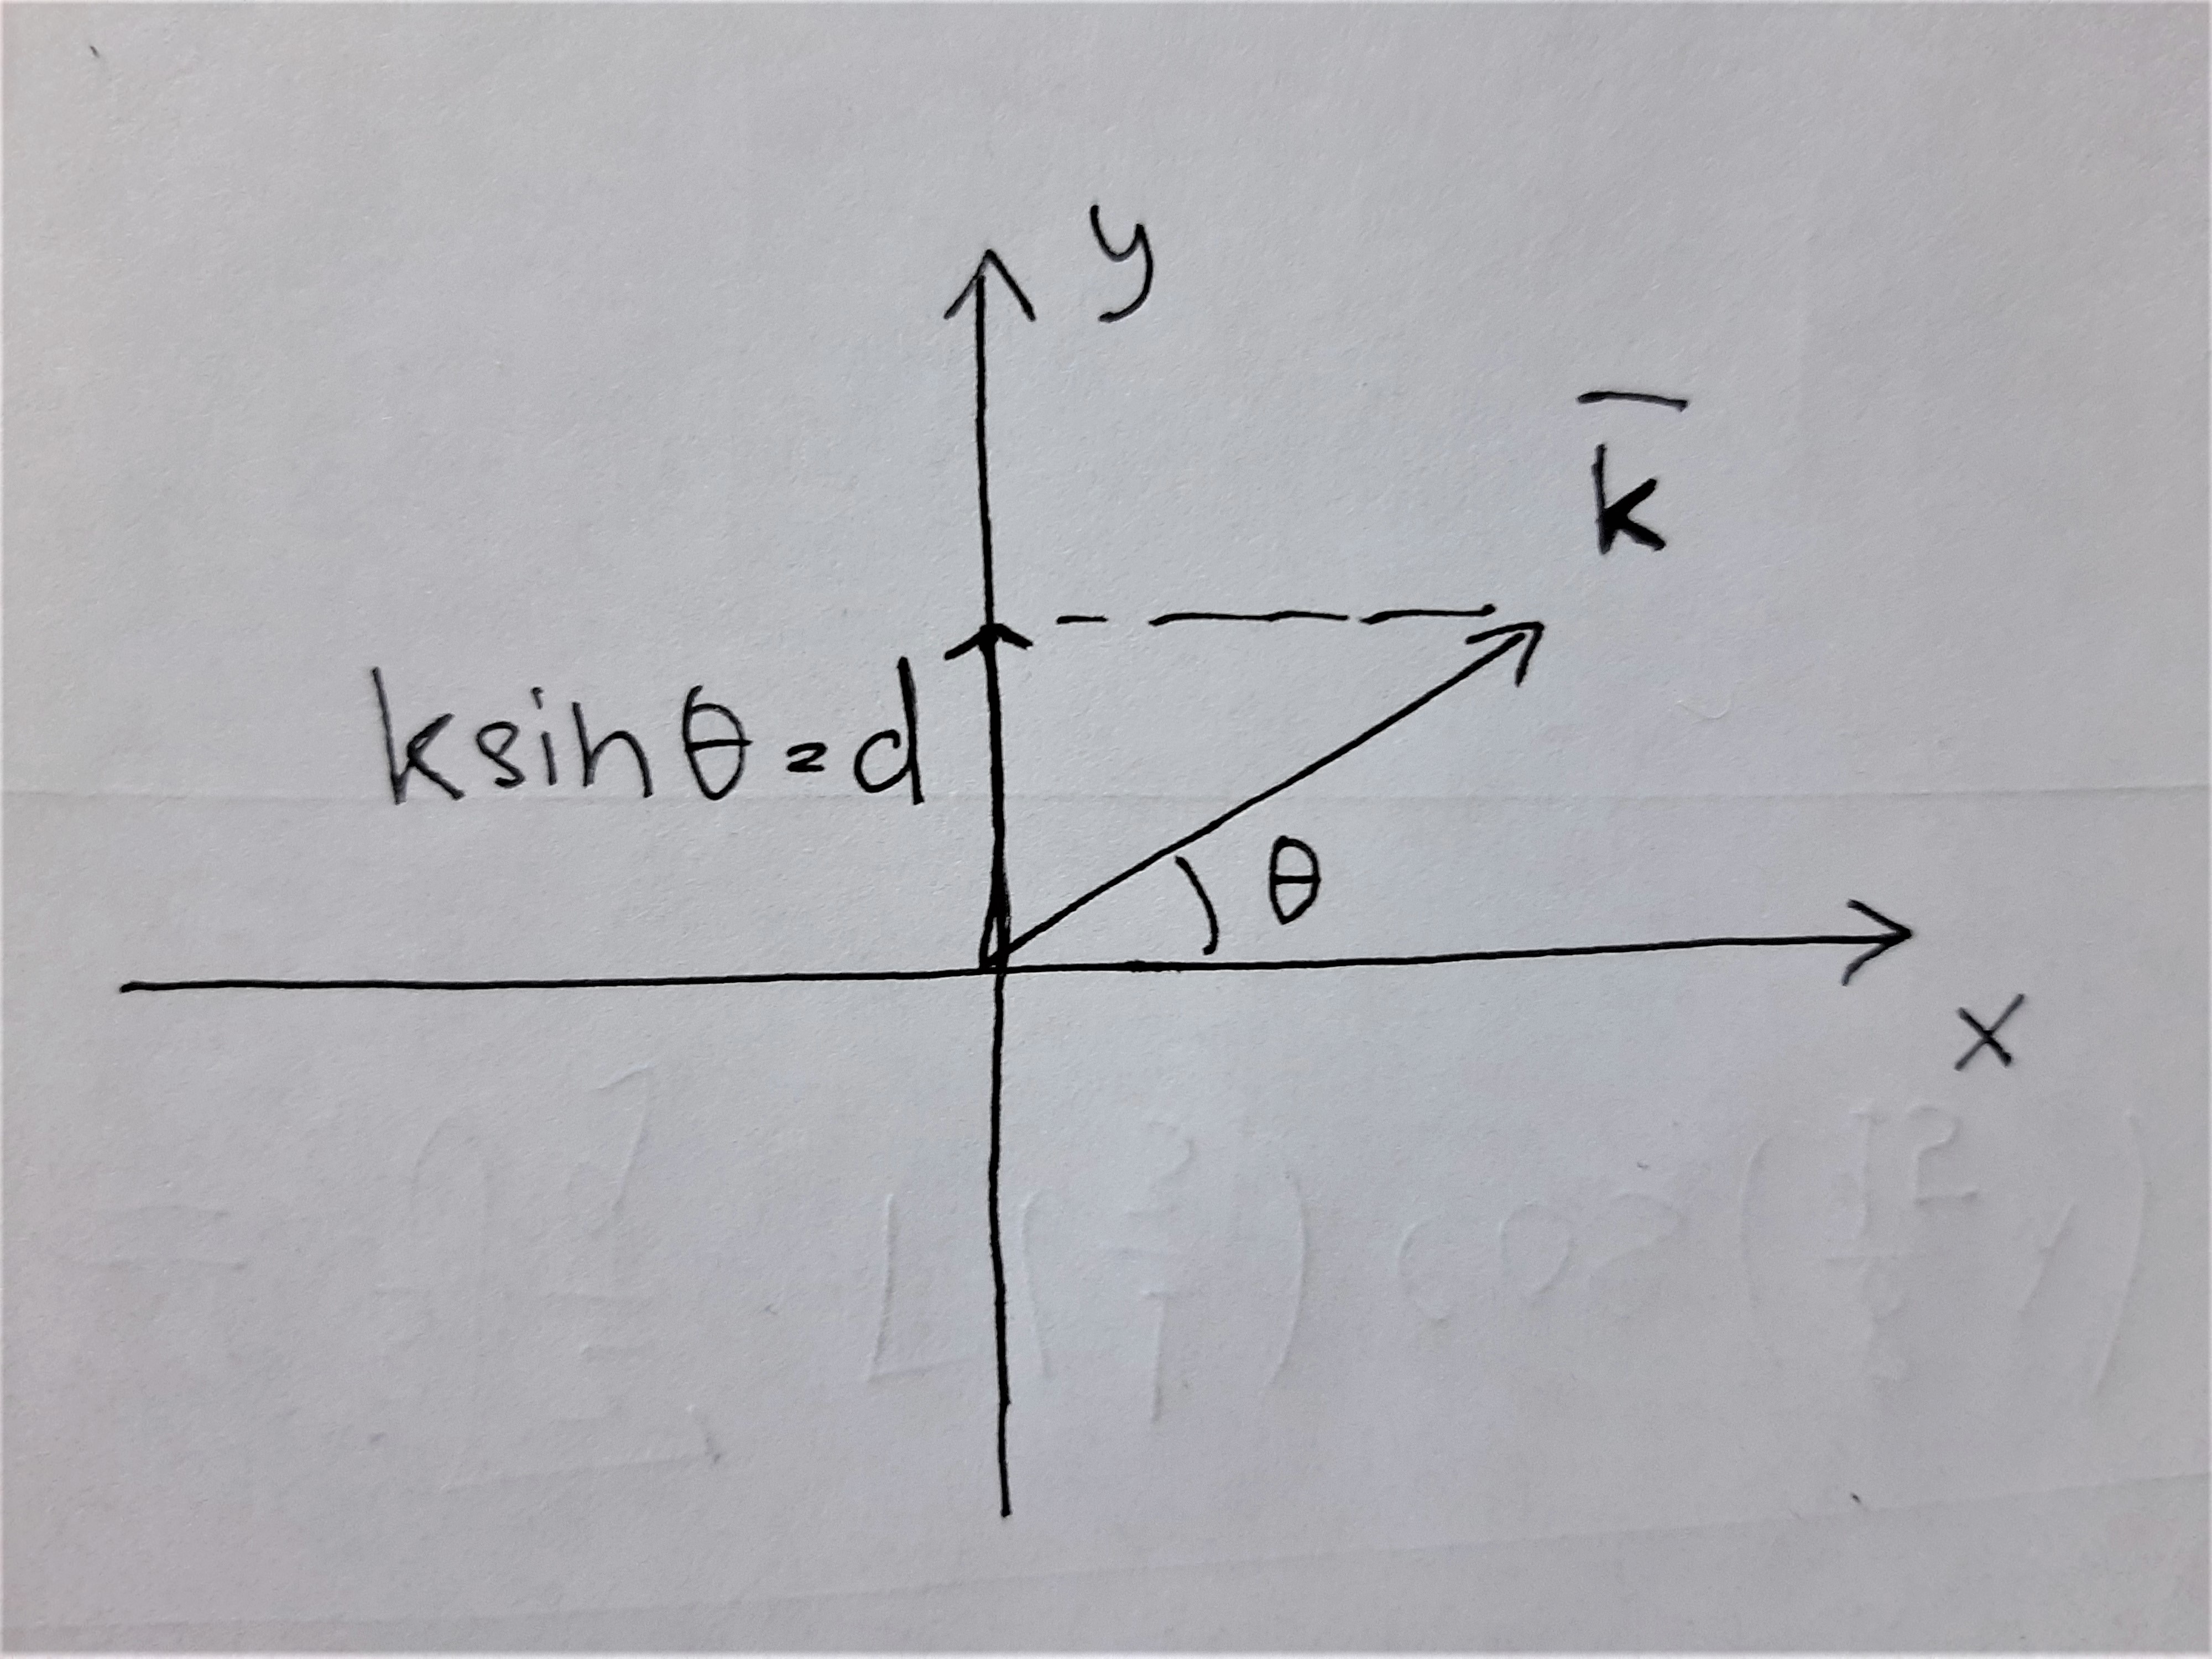 y
k̅
k sin θ = d
θ
x